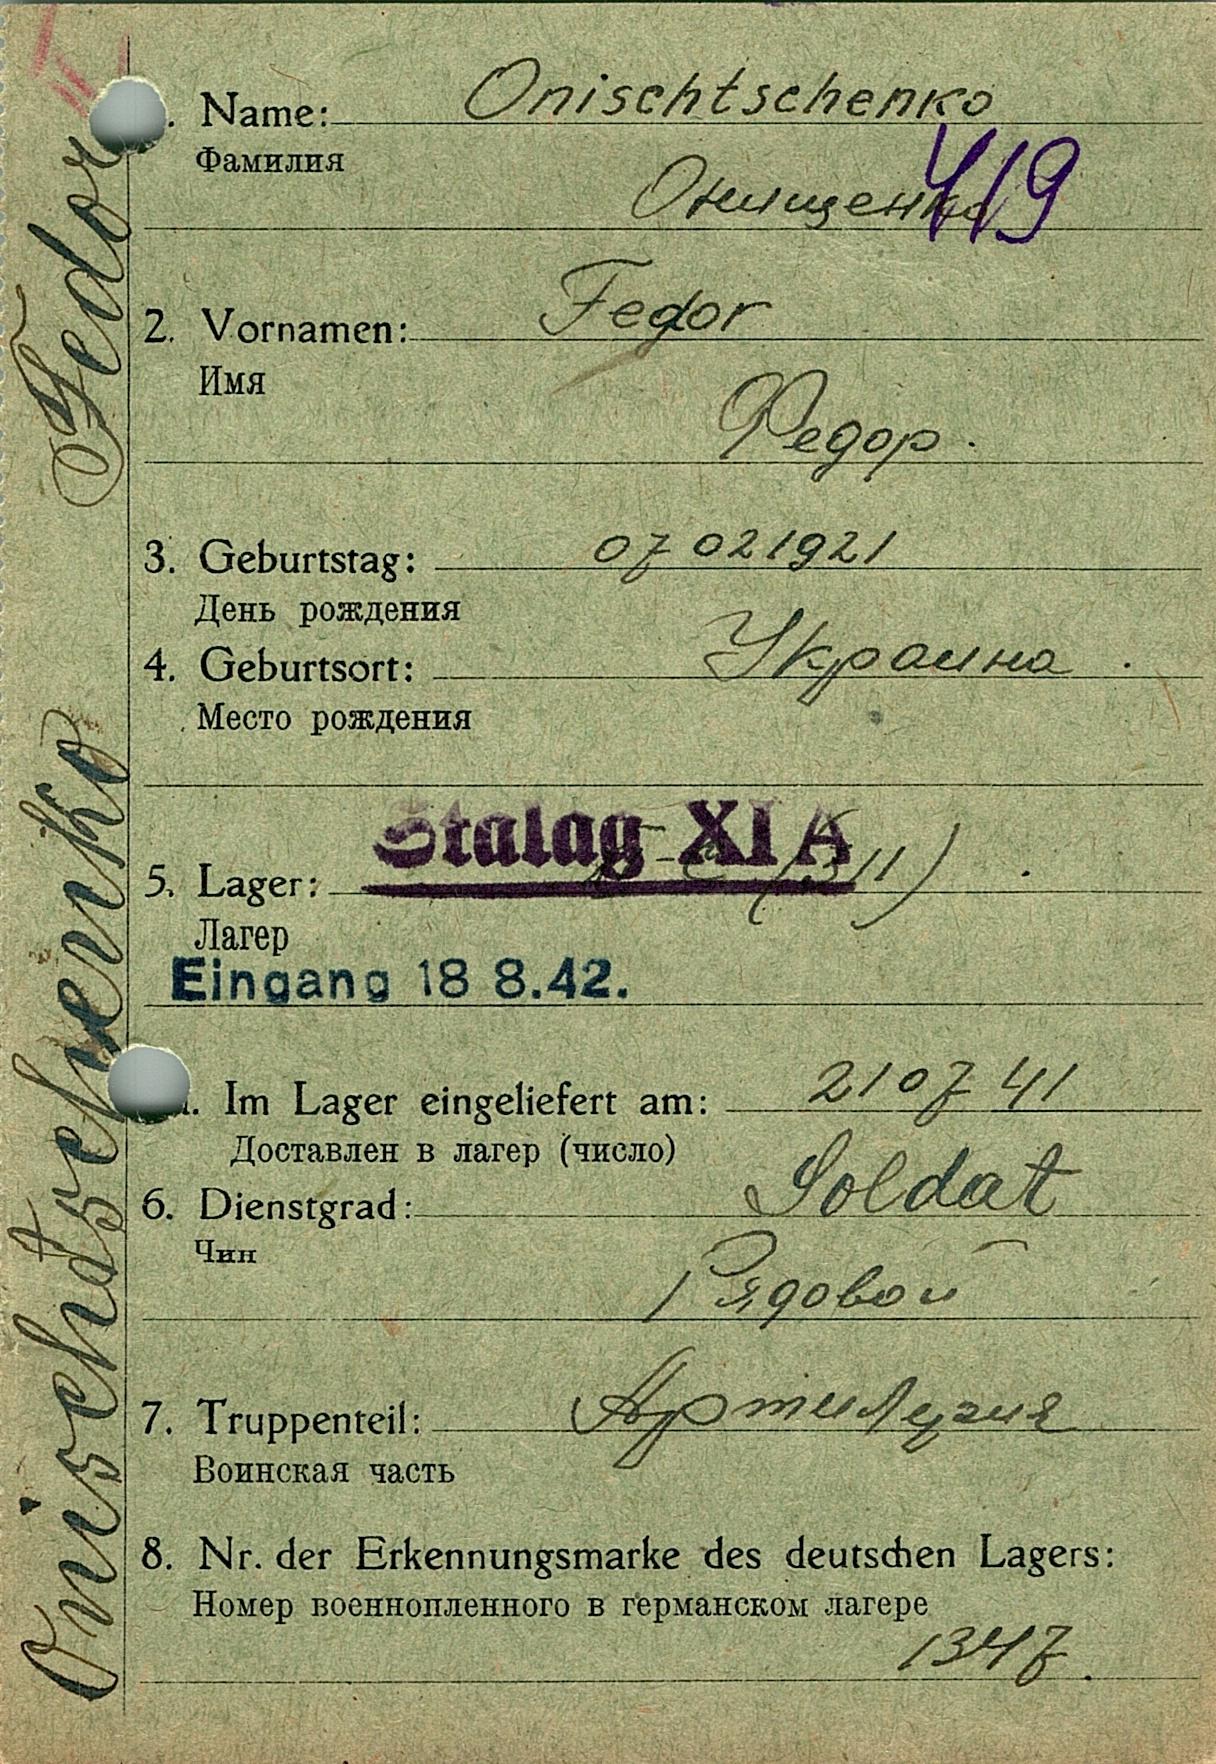 . Name: Onischtschenko
Фамилия
Онищенко
419
2. Vornamen: Fedor
Имя
Федор.
3. Geburtstag: 07 02 1921
День рождения
4. Geburtsort: Украина.
Место рождения
Stalag XI A
5. Lager: (311)
Лагер
Eingang 18 8.42.
. Im Lager eingeliefert am: 21 07 41
Доставлен в лагер (число)
6. Dienstgrad: Soldat
Чин
Рядовой
7. Truppenteil: Артилерия
Воинская часть
8. Nr. der Erkennungsmarke des deutschen Lagers:
Номер военнопленного в германском лагере
1347.
Onischtschenko Fedor